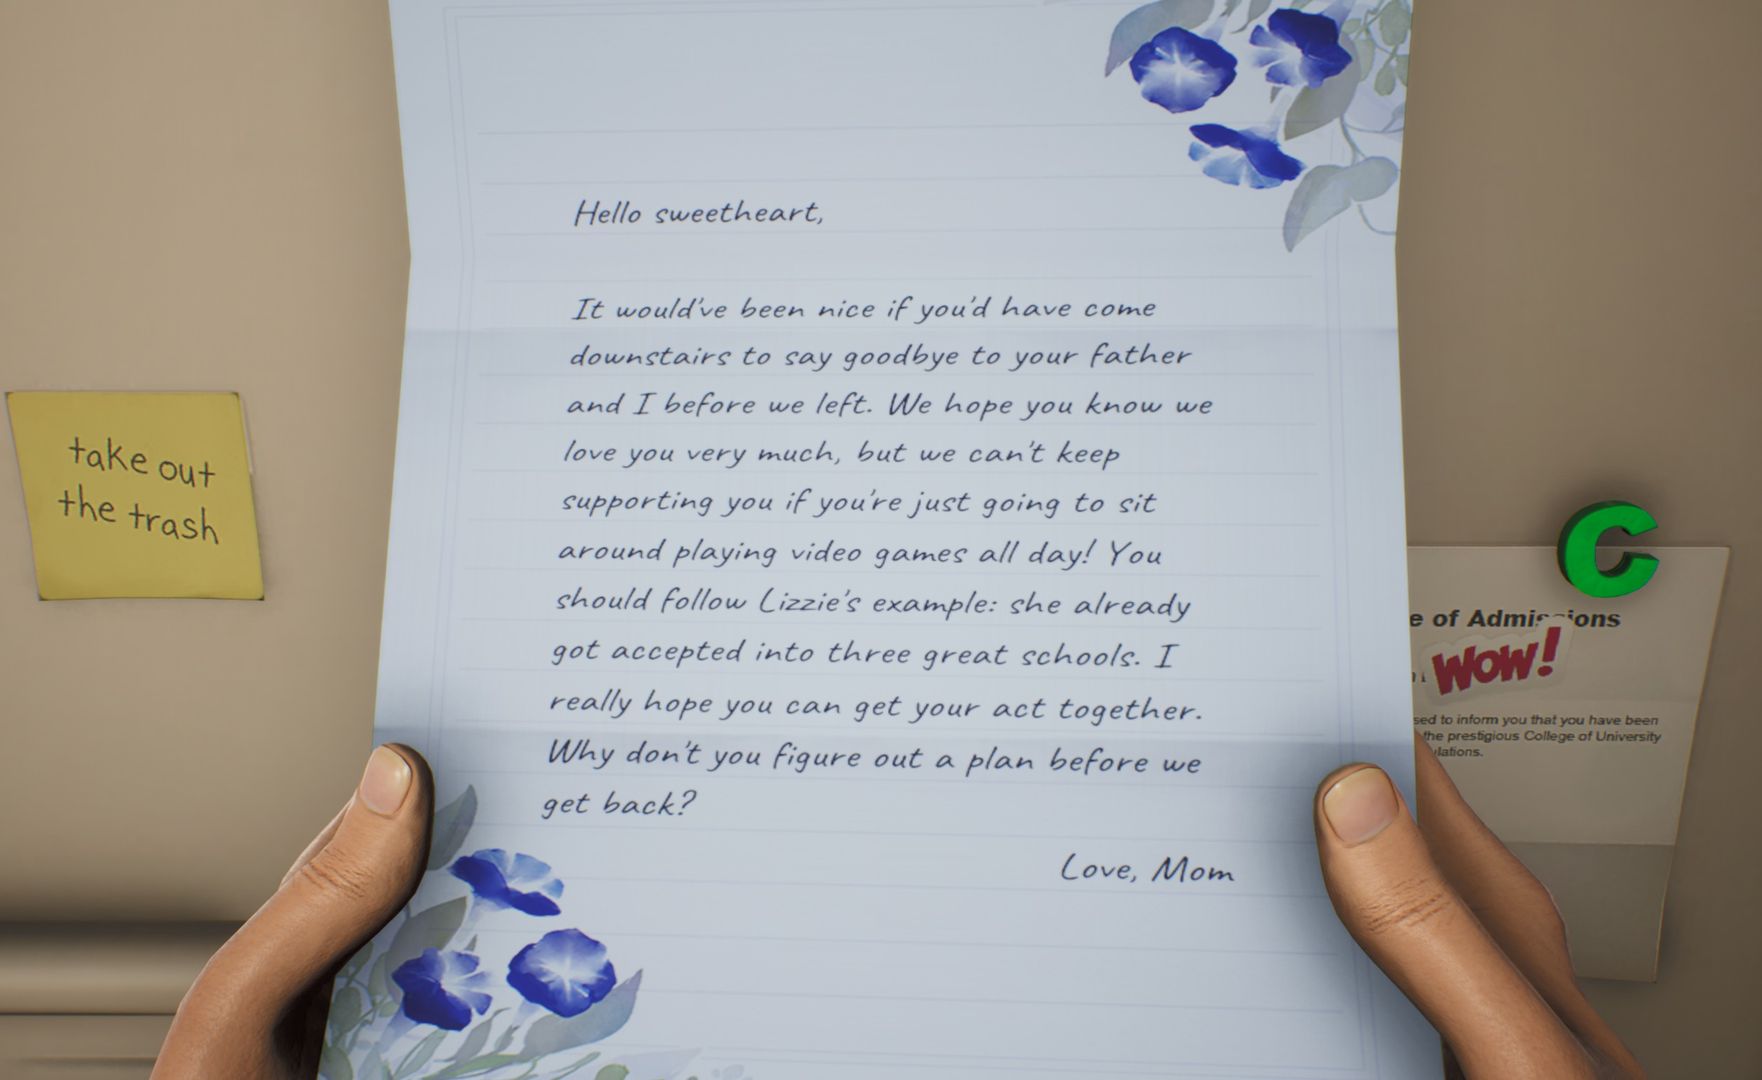 Hello sweetheart,
It would've been nice if you'd have come
downstairs to say goodbye to your father
and I before we left. We hope you know we
love you very much, but we can't keep
supporting you if you're just going to sit
around playing video games all day! You
should follow Lizzie's example: she already
got accepted into three great schools. I
really hope you can get your act together.
Why don't you figure out a plan before we
get back?
Love, Mom
take out
the trash
C
of Admissions
WOW!
to inform you that you have been
the prestigious College of University